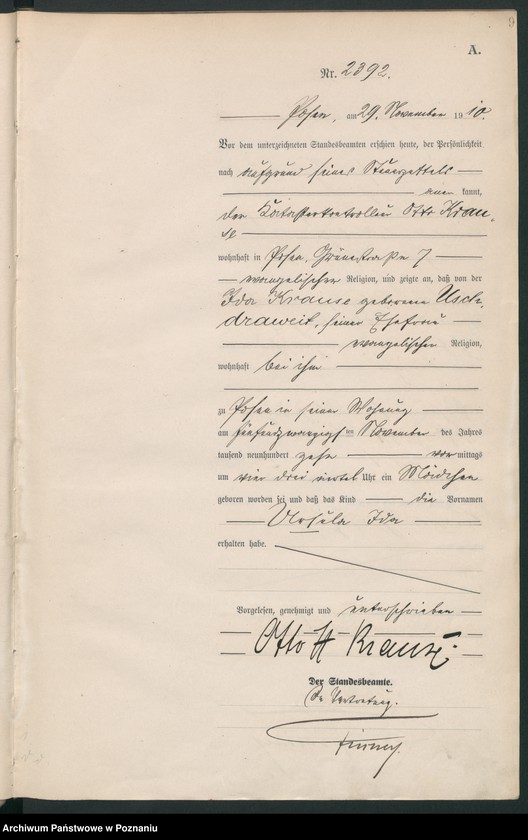 9
A.
Nr. 2392.
Posen, am 29. November 1910.
Vor dem unterzeichneten Standesbeamten erschien heute, der Persönlichkeit
nach aufgrund seines Steuerzettels
anerkannt,
der Katasterkontrolleur Otto Krau-
se
wohnhaft in Posen, Grünestraße 7
evangelischer Religion, und zeigte an, daß von der
Ida Krause geborene Usch-
draweit, seiner Ehefrau
evangelischer Religion,
wohnhaft bei ihm
zu Posen in seiner Wohnung
am fünfundzwanzigsten November des Jahres
tausend neunhundert zehn vormittags
um vier drei viertel Uhr ein Mädchen
geboren worden sei und daß das Kind die Vornamen
Ursula Ida
erhalten habe.
Vorgelesen, genehmigt und unterschrieben
Otto H Krause.
Der Standesbeamte.
In Vertretung.
Archiwum Państwowe w Poznaniu